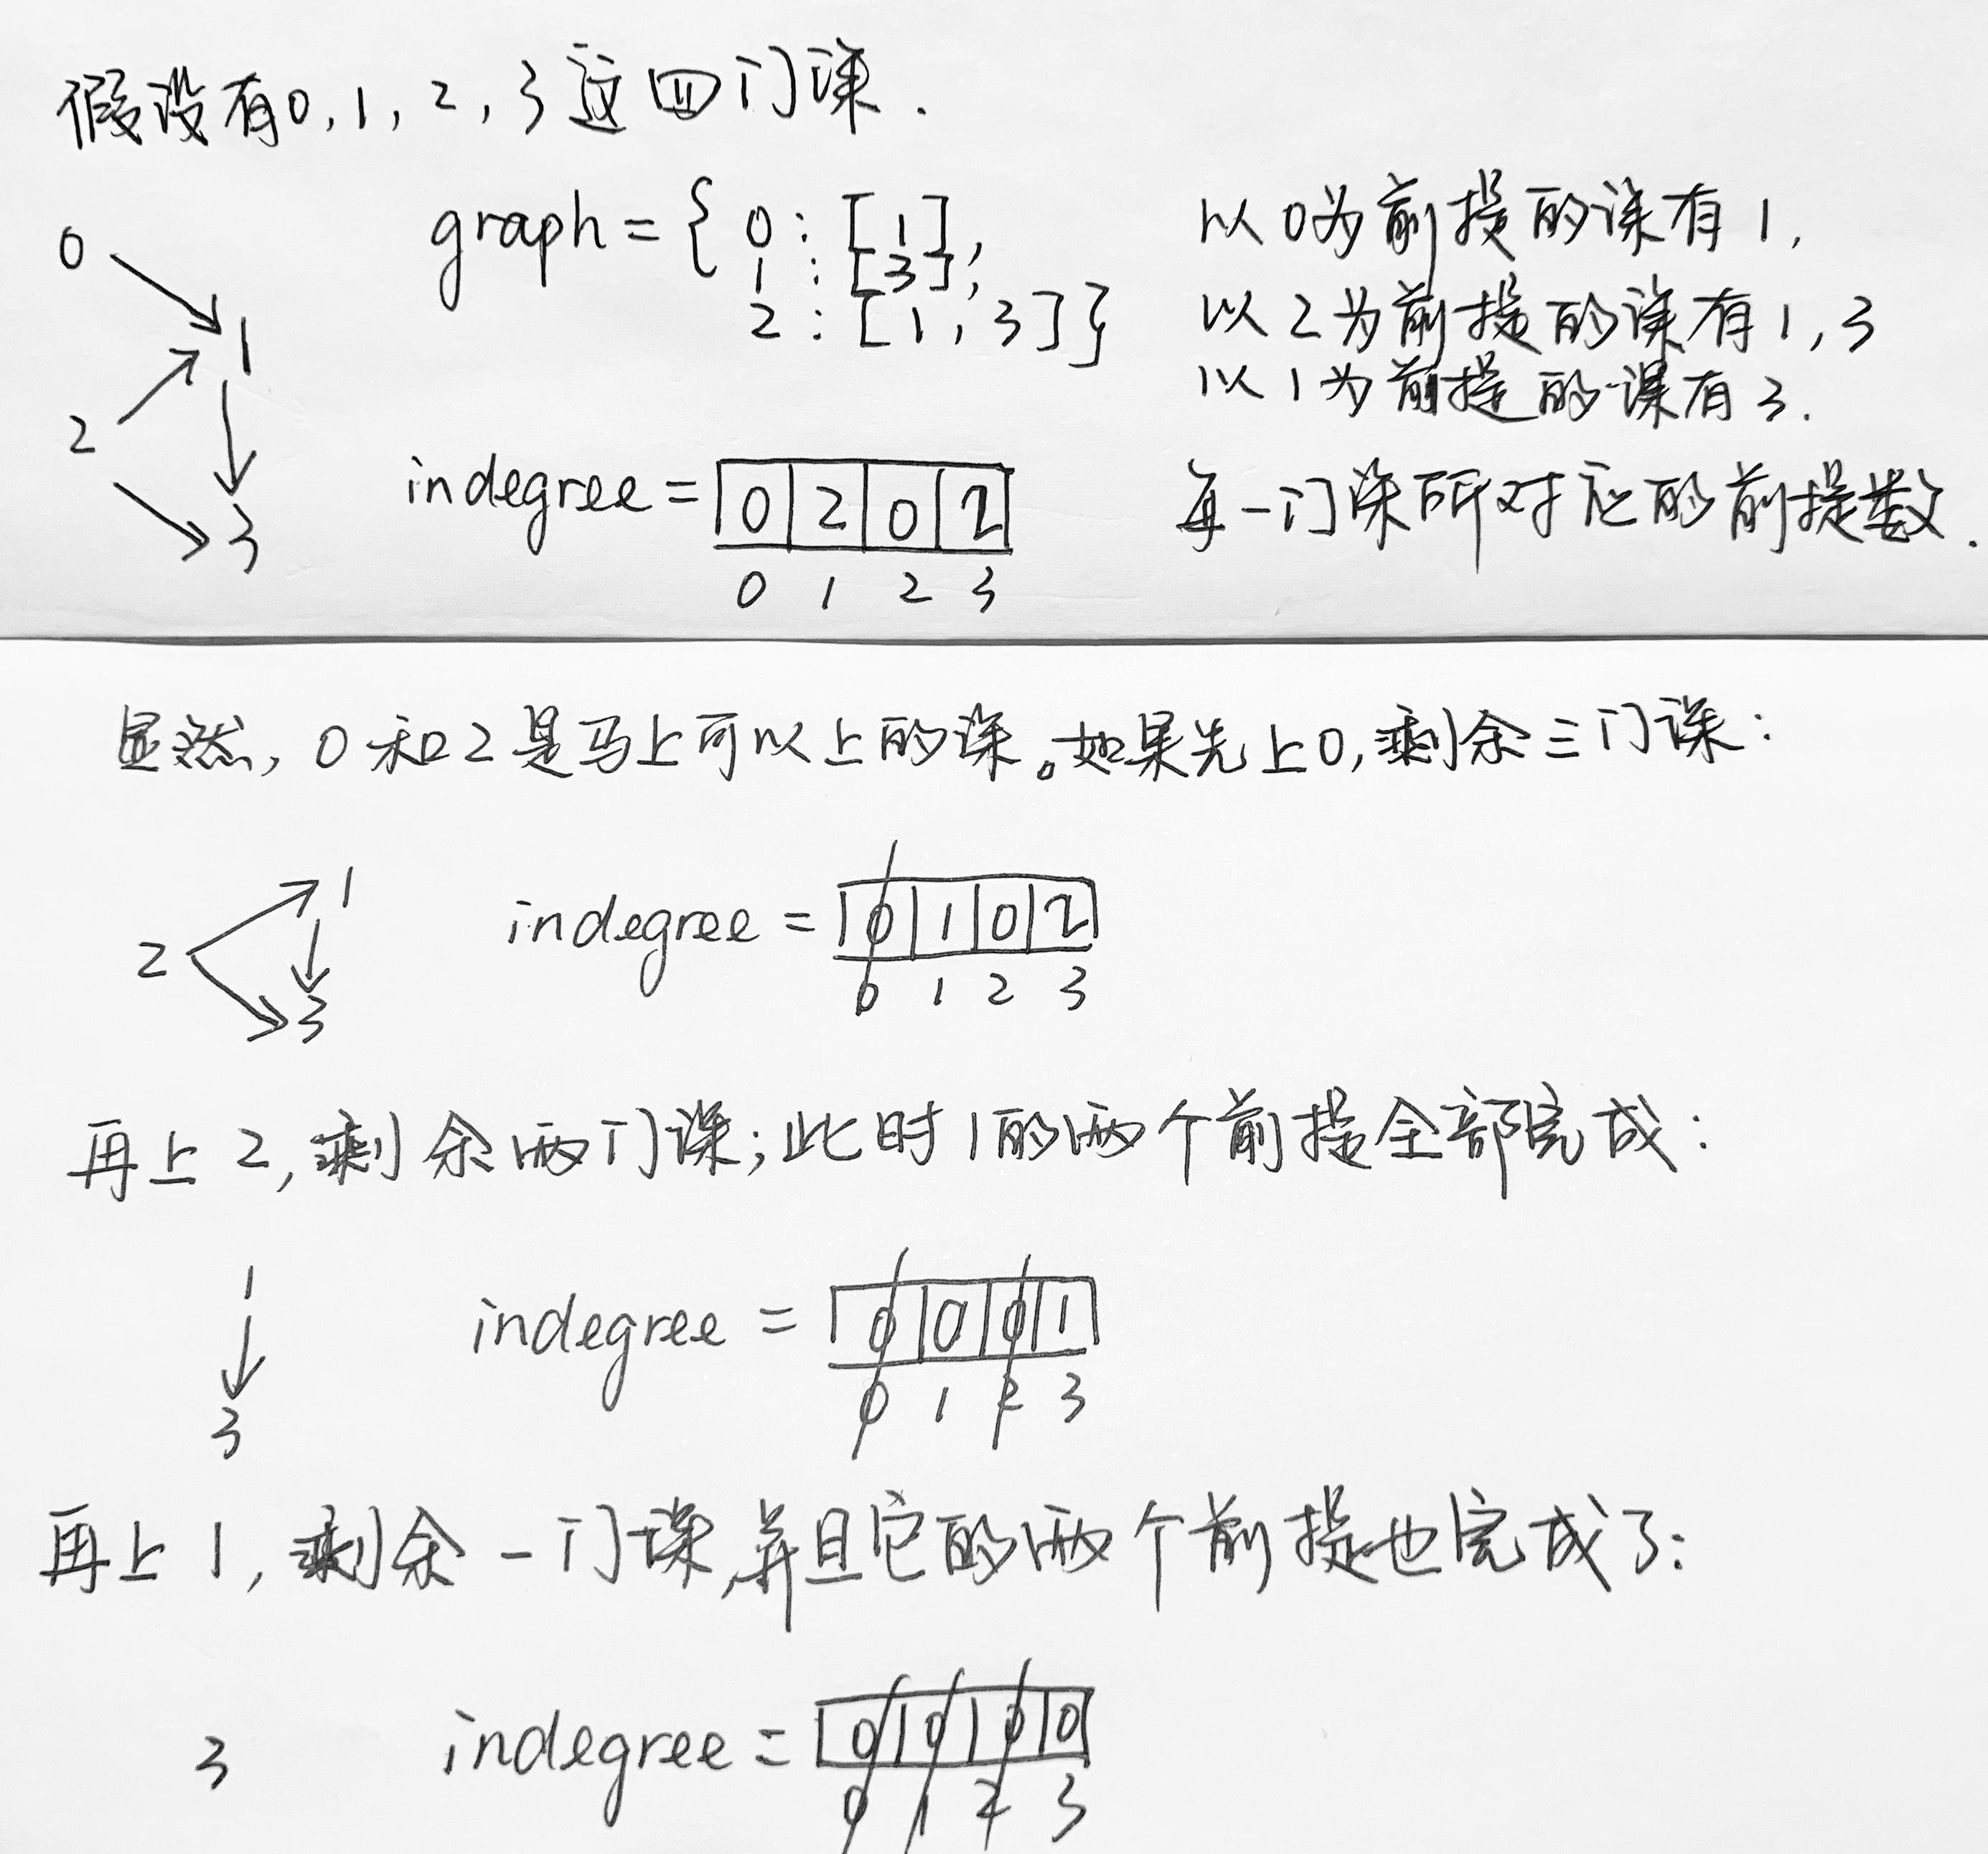 假设有0,1,2,3这四门课.
0
1
2
3
graph={0:[1],
1:[3],
2:[1,3]}
以0为前提的课有1,
以2为前提的课有1,3
以1为前提的课有3.
indegree=0 2 0 2
0 1 2 3
每一门课所对应的前提数.
显然,0和2是马上可以上的课。如果先上0,剩余三门课:
1
2
3
indegree=0 1 0 2
0 1 2 3
再上2,剩余两门课;此时1的两个前提全部完成:
1
3
indegree=0 0 0 1
0 1 2 3
再上1,剩余一门课,并且它的两个前提也完成了:
3
indegree=0 0 0 0
0 1 2 3